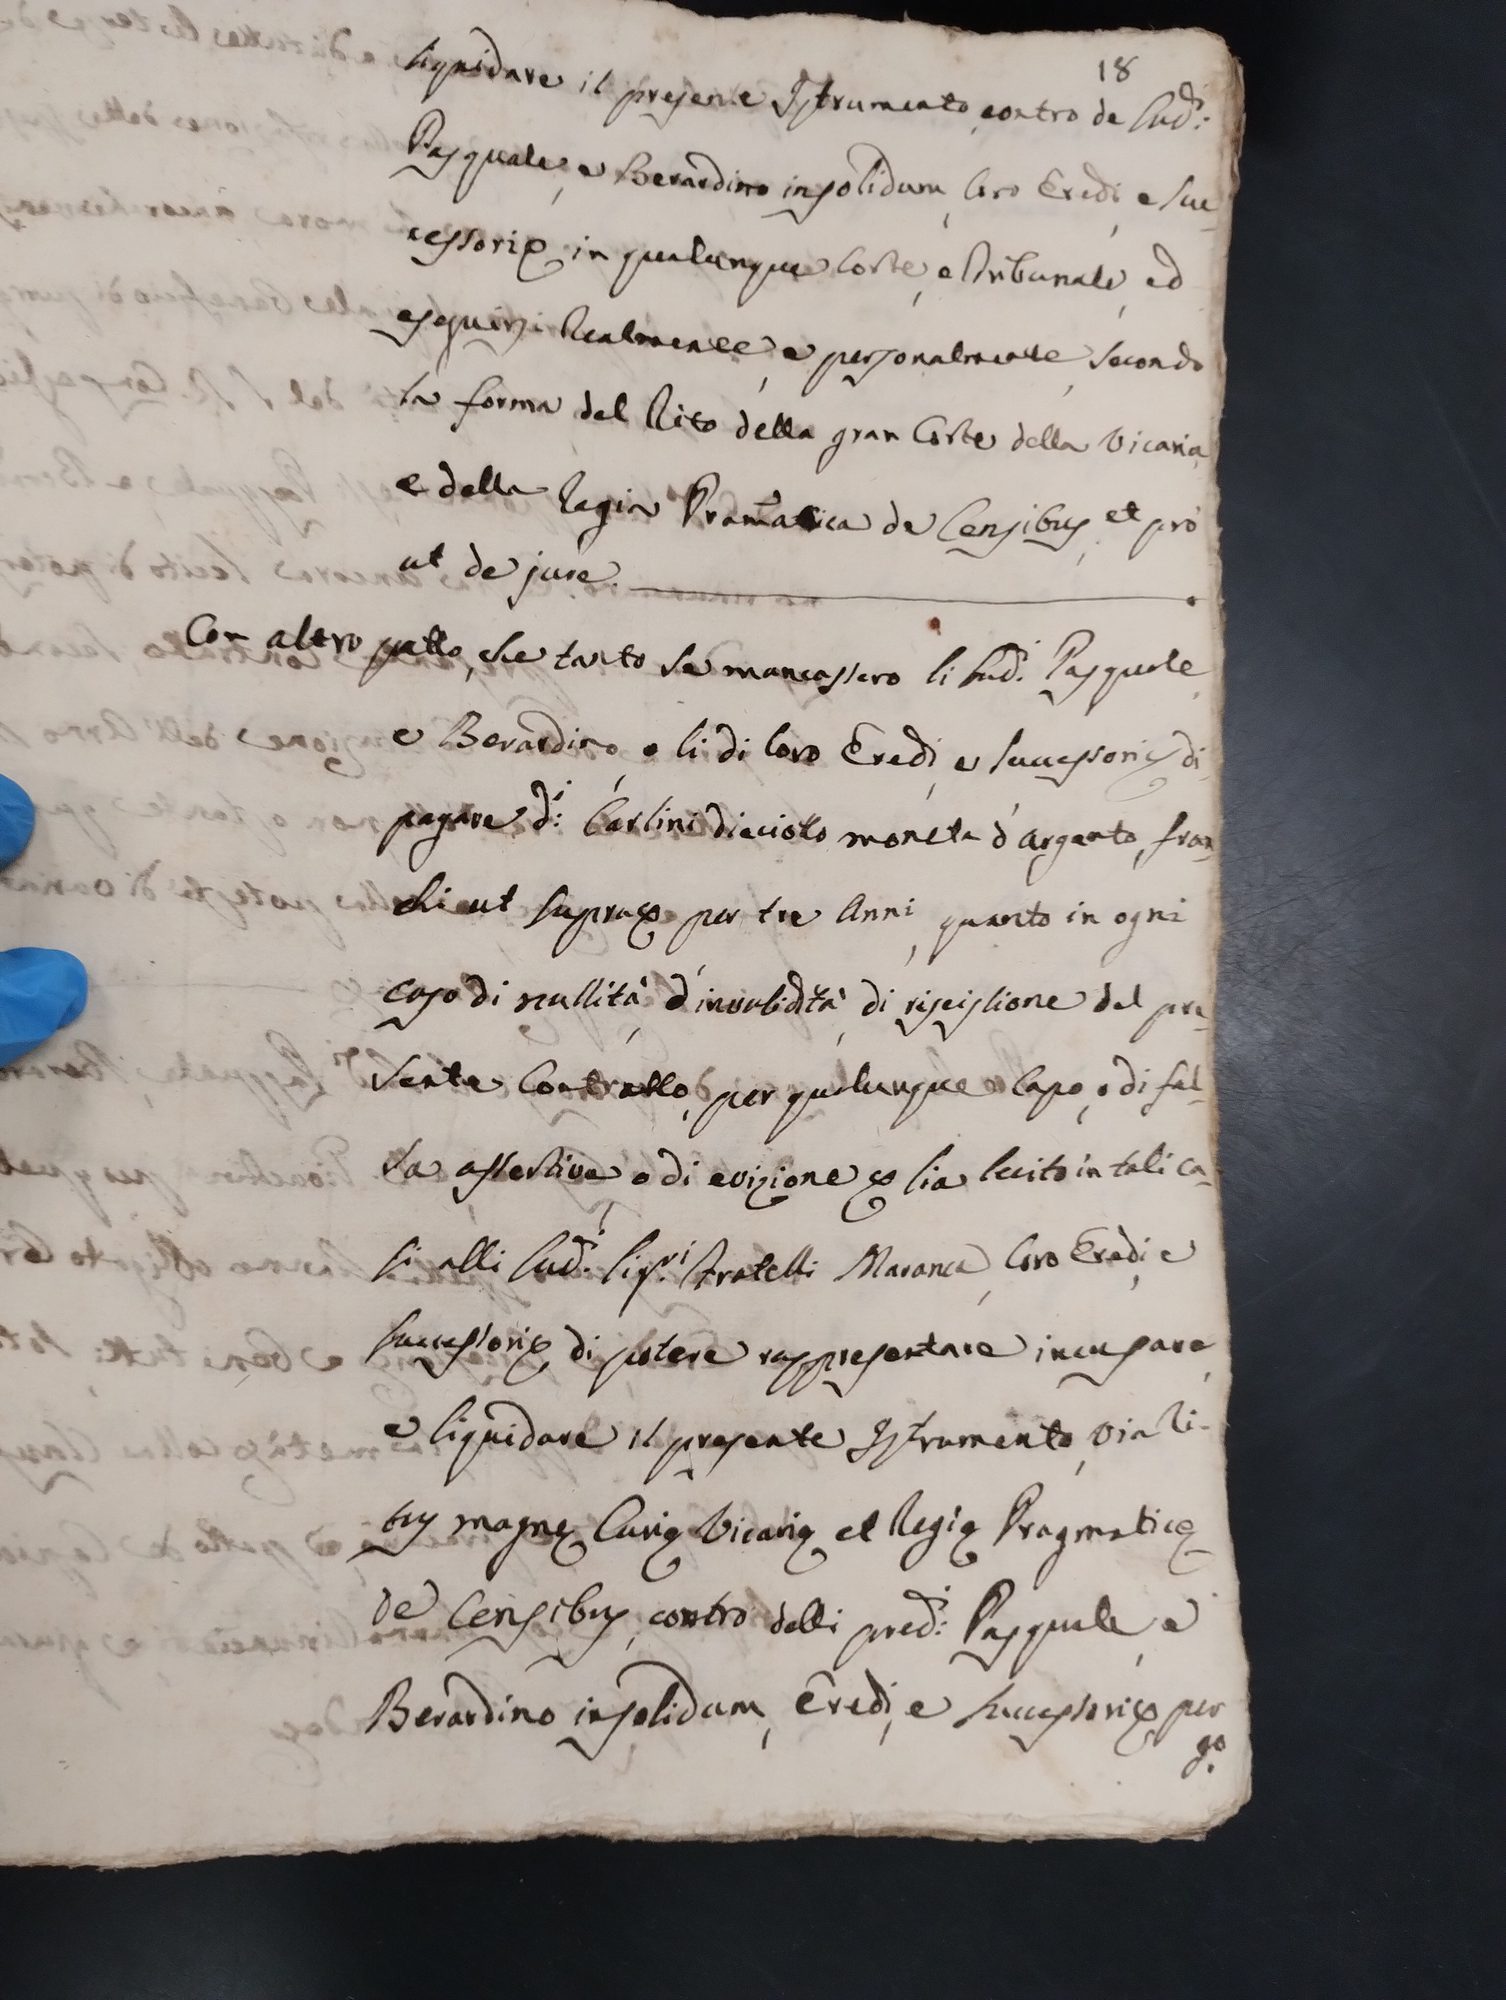 18
liquidare il presente Istrumento contro de sud.i
Pasquale, e Berardino insolidum, loro Eredi, e suc-
cessori, in qualunque Corte, e Tribunale, ed
eseguirsi realmente, e personalmente, secondo
la forma del Rito della gran Corte della Vicaria,
e della Regia Pramatica de Censibus, et pro
ut de jure.
Con altro patto, che tanto se mancassero li sud.i Pasquale,
e Berardino, o li di loro Eredi, e successori di
pagare d.i Carlini dieciotto moneta d'argento, fran-
chi ut supra per tre Anni, quanto in ogni
caso di nullità, d'invalidità, di riscissione del pre-
sente Contratto, per qualunque Capo, o di fal-
sa assertiva, o di evizione sia lecito in tali ca-
si alli sud.i Sig.ri Fratelli Maranca, loro Eredi, e
successori, di potere rappresentare incusare,
e liquidare il presente Istrumento, via Ri-
tus magnę Curię Vicarię et Regię Pragmaticę
de Censibus, contro delli pred.i Pasquale, e
Berardino insolidum, Eredi, e successori per
go.